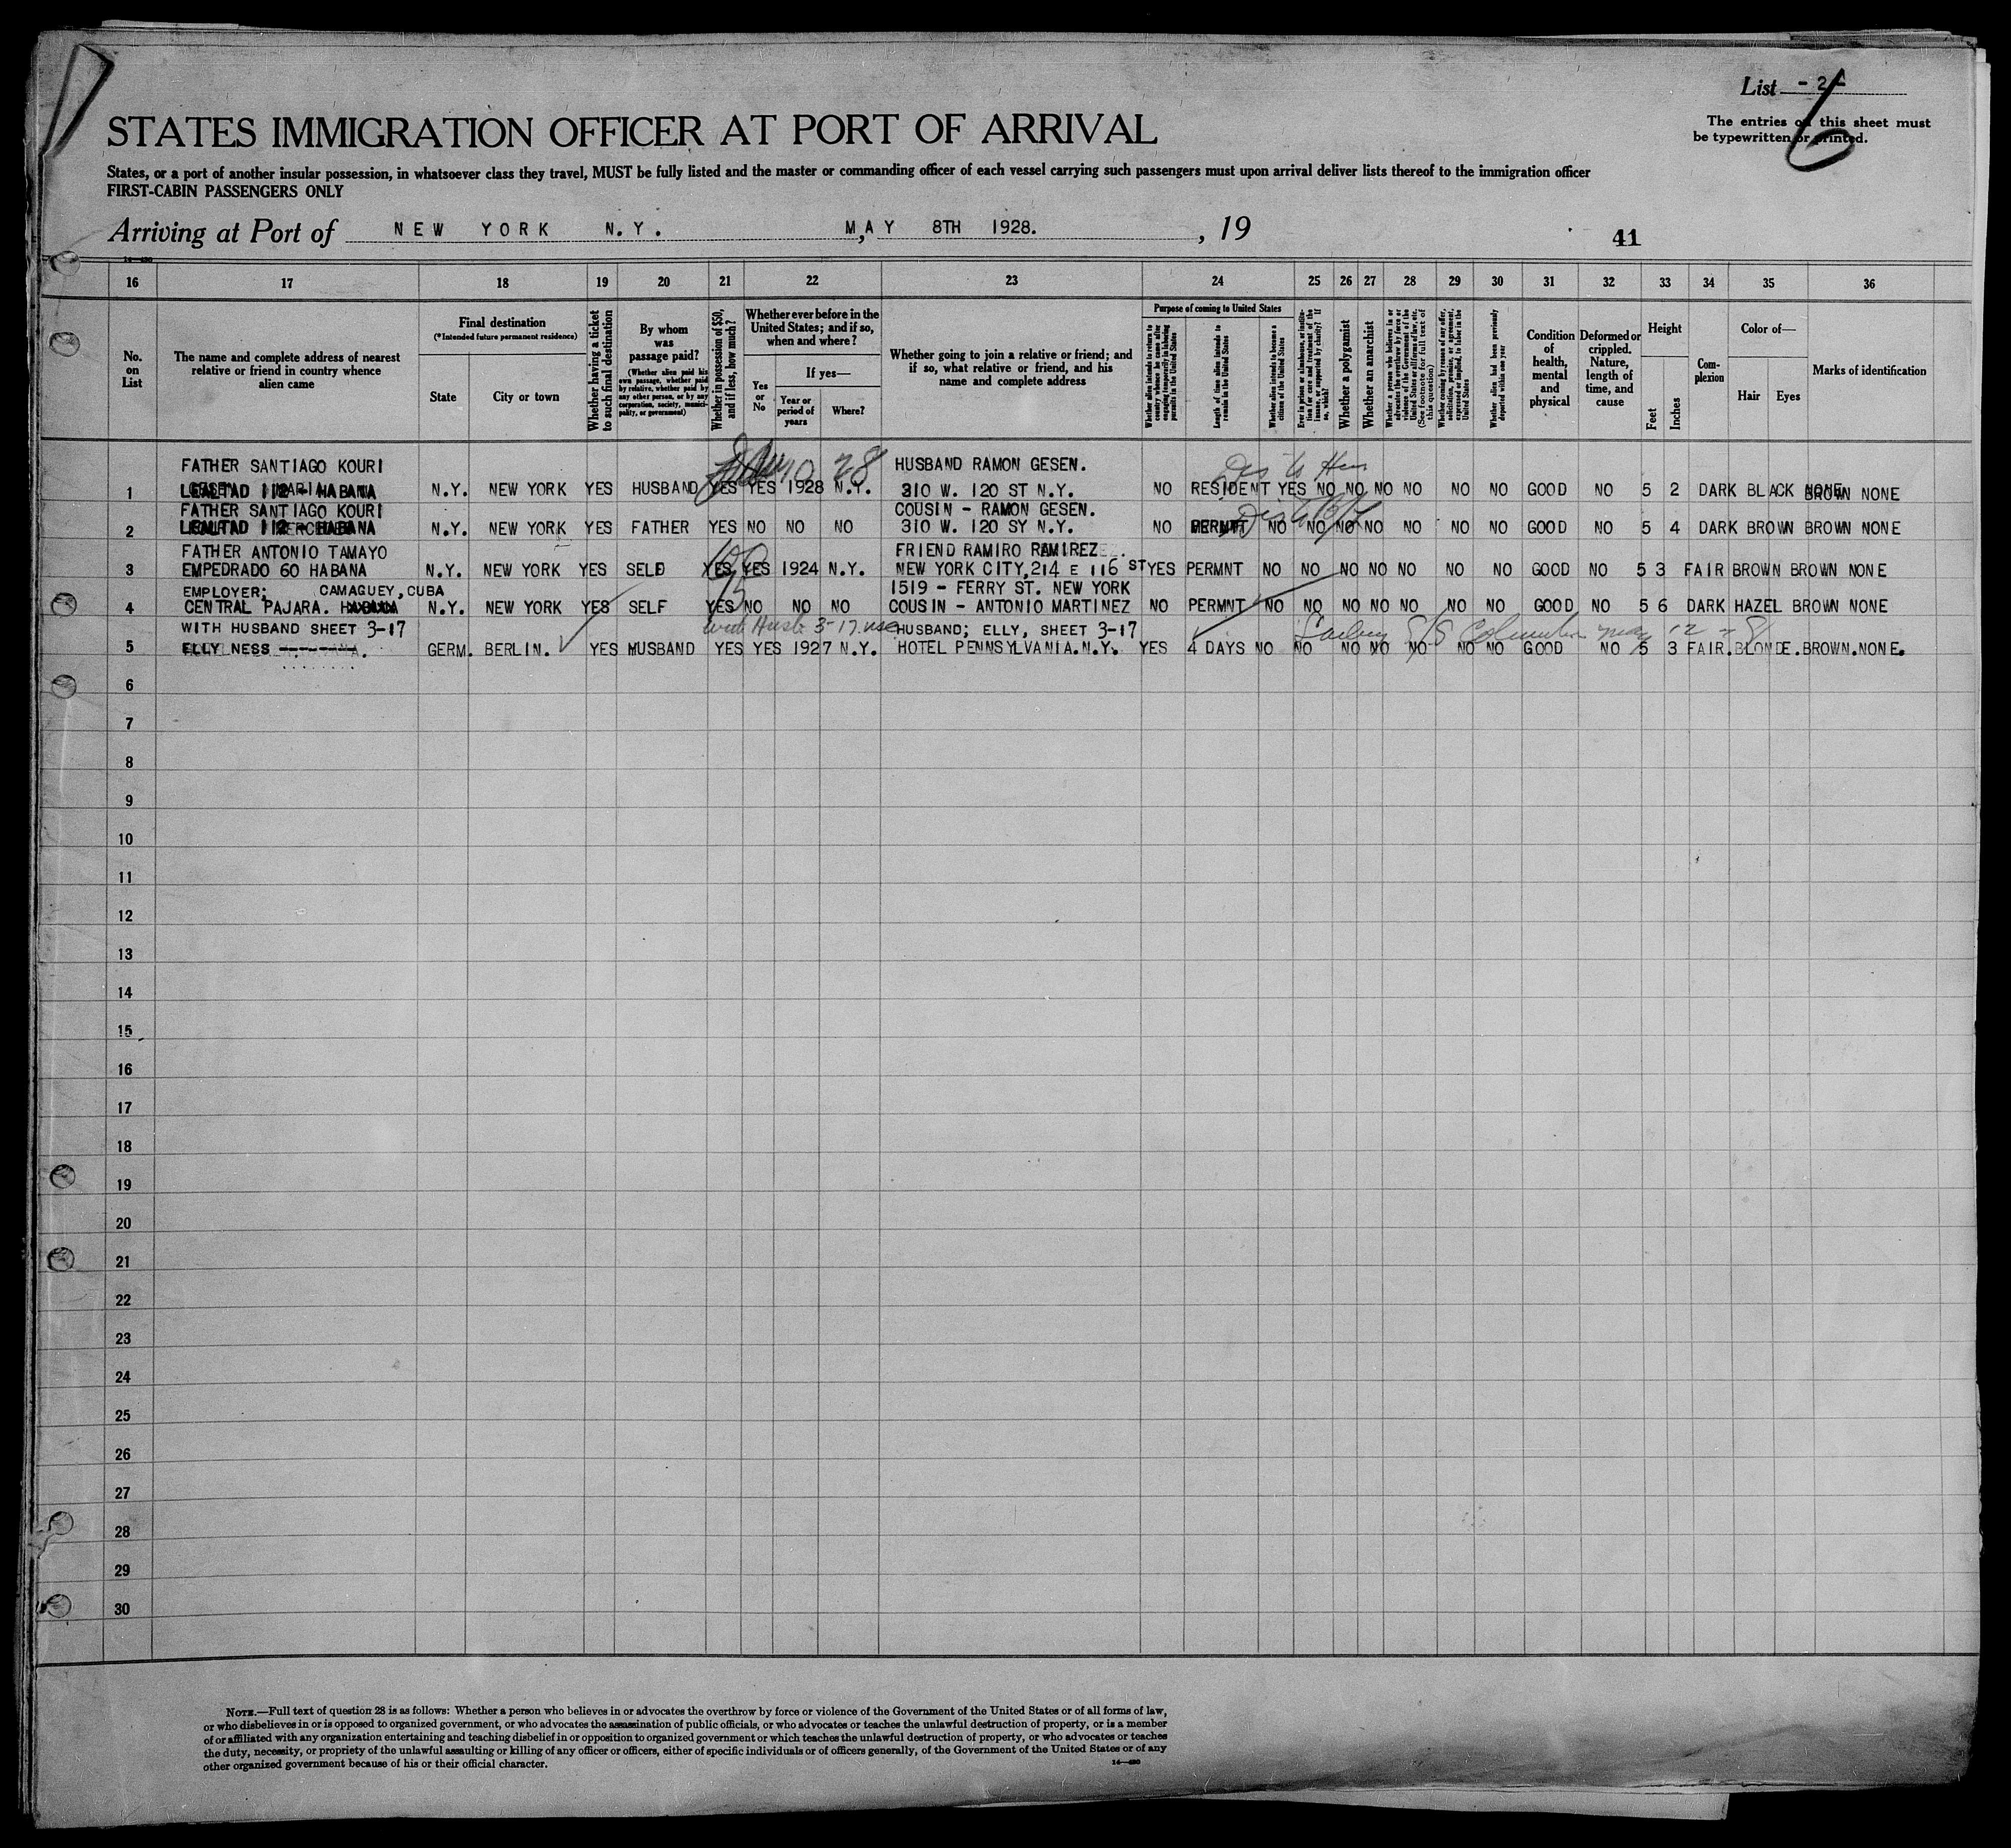 List - 2 -
6
The entries on this sheet must
be typewritten or printed.
STATES IMMIGRATION OFFICER AT PORT OF ARRIVAL
States, or a port of another insular possession, in whatsoever class they travel, MUST be fully listed and the master or commanding officer of each vessel carrying such passengers must upon arrival deliver lists thereof to the immigration officer
FIRST-CABIN PASSENGERS ONLY
Arriving at Port of NEW YORK N.Y. MAY 8TH 1928. , 19
41
16 17 18 19 20 21 22 23 24 25 26 27 28 29 30 31 32 33 34 35 36
No. on List
The name and complete address of nearest relative or friend in country whence alien came
Final destination
(*Intended future permanent residence)
State
City or town
Whether having a ticket to such final destination
By whom was passage paid?
(Whether alien paid his own passage, whether paid by relative, whether paid by any other person, or by any corporation, society, municipality, or government)
Whether in possession of $50, and if less, how much?
Whether ever before in the United States; and if so, when and where?
Yes or No
If yes—
Year or period of years
Where?
Whether going to join a relative or friend; and if so, what relative or friend, and his name and complete address
Purpose of coming to United States
Whether alien intends to return to country whence he came after engaging temporarily in laboring pursuits in the United States
Length of time alien intends to remain in the United States
Whether alien intends to become a citizen of the United States
Ever in prison or almshouse, or institution for care and treatment of the insane, or supported by charity? If so, which?
Whether a polygamist
Whether an anarchist
Whether a person who believes in or advocates the overthrow by force or violence of the Government of the United States or all forms of law, etc. (See footnote for full text of this question)
Whether coming by reason of any offer, solicitation, promise, or agreement, expressed or implied, to labor in the United States
Whether alien had been previously deported within one year
Condition of health, mental and physical
Deformed or crippled. Nature, length of time, and cause
Height
Feet
Inches
Complexion
Color of—
Hair
Eyes
Marks of identification
FATHER SANTIAGO KOURI HUSBAND RAMON GESEN.
1 LEALTAD 112 - HABANA N.Y. NEW YORK YES HUSBAND YES YES 1928 N.Y. 310 W. 120 ST N.Y. NO RESIDENT YES NO NO NO NO NO NO GOOD NO 5 2 DARK BLACK BROWN NONE
FATHER SANTIAGO KOURI COUSIN - RAMON GESEN.
2 LEALTAD 112 - HABANA N.Y. NEW YORK YES FATHER YES NO NO NO 310 W. 120 SY N.Y. NO PERMNT NO NO NO NO NO NO NO GOOD NO 5 4 DARK BROWN BROWN NONE
FATHER ANTONIO TAMAYO 100 FRIEND RAMIRO RAMIREZ
3 EMPEDRADO 60 HABANA N.Y. NEW YORK YES SELF YES YES 1924 N.Y. NEW YORK CITY, 214 E 116 ST YES PERMNT NO NO NO NO NO NO NO GOOD NO 5 3 FAIR BROWN BROWN NONE
EMPLOYER; CAMAGUEY, CUBA 75 1519 - FERRY ST. NEW YORK
4 CENTRAL PAJARA. N.Y. NEW YORK YES SELF YES NO NO NO COUSIN - ANTONIO MARTINEZ NO PERMNT NO NO NO NO NO NO NO GOOD NO 5 6 DARK HAZEL BROWN NONE
WITH HUSBAND SHEET 3-17 with Husb 3-17 HUSBAND; ELLY, SHEET 3-17 Sailing S/S Columbus May 12 - 28
5 ELLY NESS GERM. BERLIN. YES HUSBAND YES YES 1927 N.Y. HOTEL PENNSYLVANIA. N.Y. YES 4 DAYS NO NO NO NO NO NO NO GOOD NO 5 3 FAIR. BLONDE. BROWN. NONE.
6
7
8
9
10
11
12
13
14
15
16
17
18
19
20
21
22
23
24
25
26
27
28
29
30
NOTE.—Full text of question 28 is as follows: Whether a person who believes in or advocates the overthrow by force or violence of the Government of the United States or of all forms of law,
or who disbelieves in or is opposed to organized government, or who advocates the assassination of public officials, or who advocates or teaches the unlawful destruction of property, or is a member
of or affiliated with any organization entertaining and teaching disbelief in or opposition to organized government or which teaches the unlawful destruction of property, or who advocates or teaches
the duty, necessity, or propriety of the unlawful assaulting or killing of any officer or officers, either of specific individuals or of officers generally, of the Government of the United States or of any
other organized government because of his or their official character.
14—430